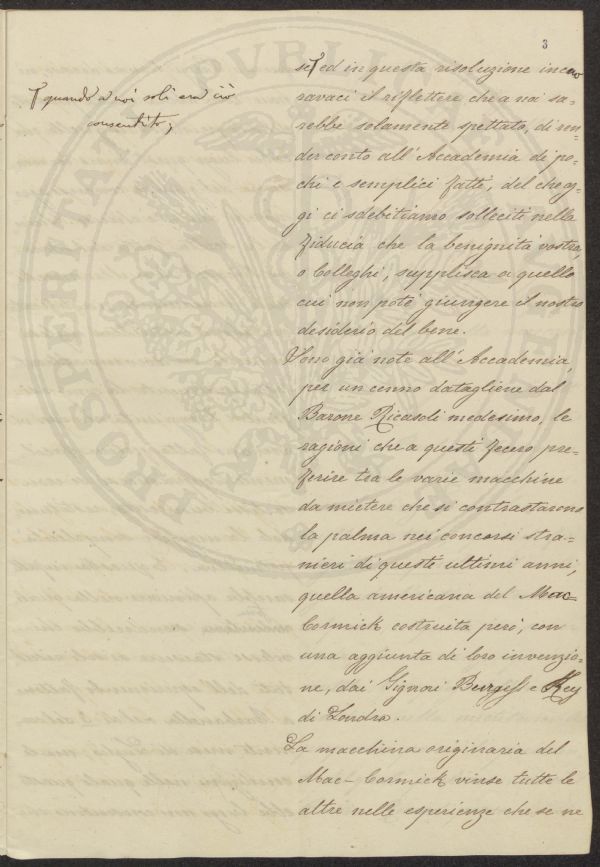 3
se ꝉ ed in questa risoluzione incuo
ravaci il riflettere che a noi sa=
rebbe solamente spettato, di ren=
der conto all'Accademia di po=
chi e semplici fatti, del che og=
gi ci sdebitiamo solleciti nella
fiducia che la benignità vostra,
o Colleghi, supplisca a quello
cui non potè giungere il nostro
desiderio del bene.
Sono già note all'Accademia,
per un cenno datagliene dal
Barone Ricasoli medesimo, le
ragioni che a questi fecero pre=
ferire tra le varie macchine
da mietere che si contrastarono
la palma nei concorsi stra=
nieri di questi ultimi anni,
quella americana del Mac=
Cormick costruita però, con
una aggiunta di loro invenzio=
ne, dai Signori Burgess e Key
di Londra.
La macchina originaria del
Mac-Cormick vinse tutte le
altre nelle esperienze che se ne
ꝉ quando a noi soli era ciò
consentito,
PROSPERITATI PVBLICAE